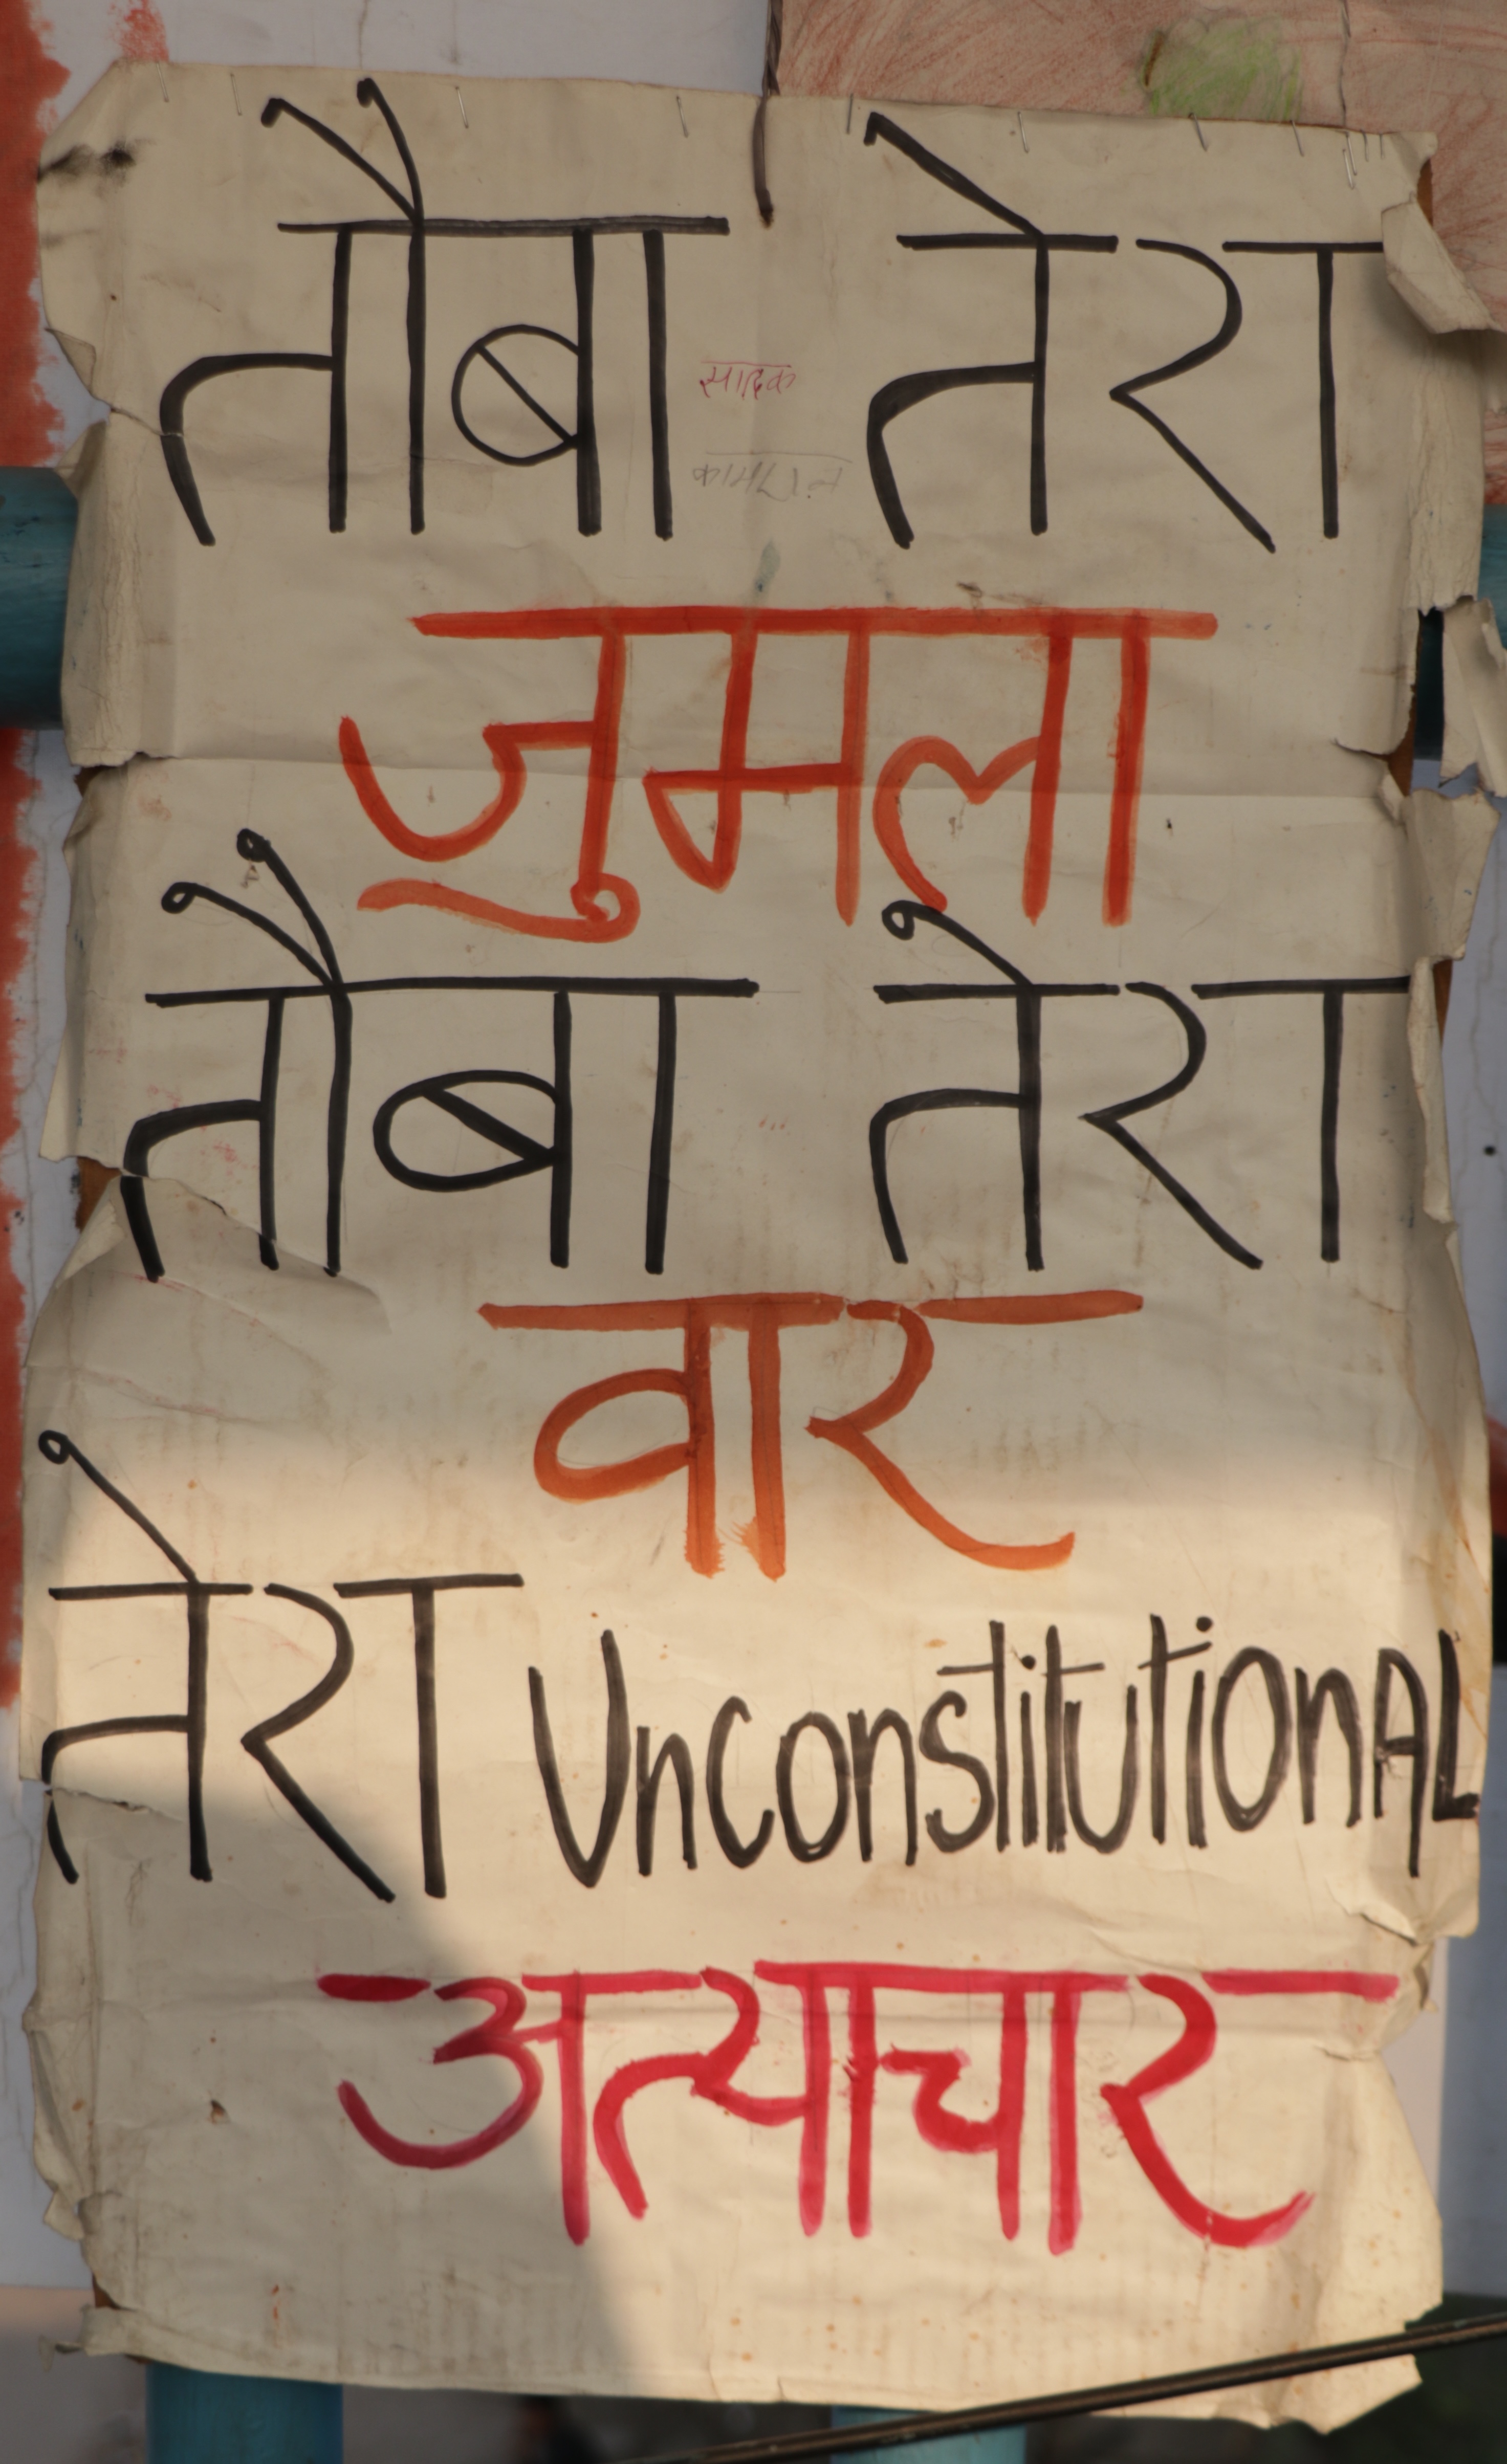 तौबा तेरा
सादिक
जुमला
तौबा तेरा
वार
तेरा UnconstitutionAL
अत्याचार